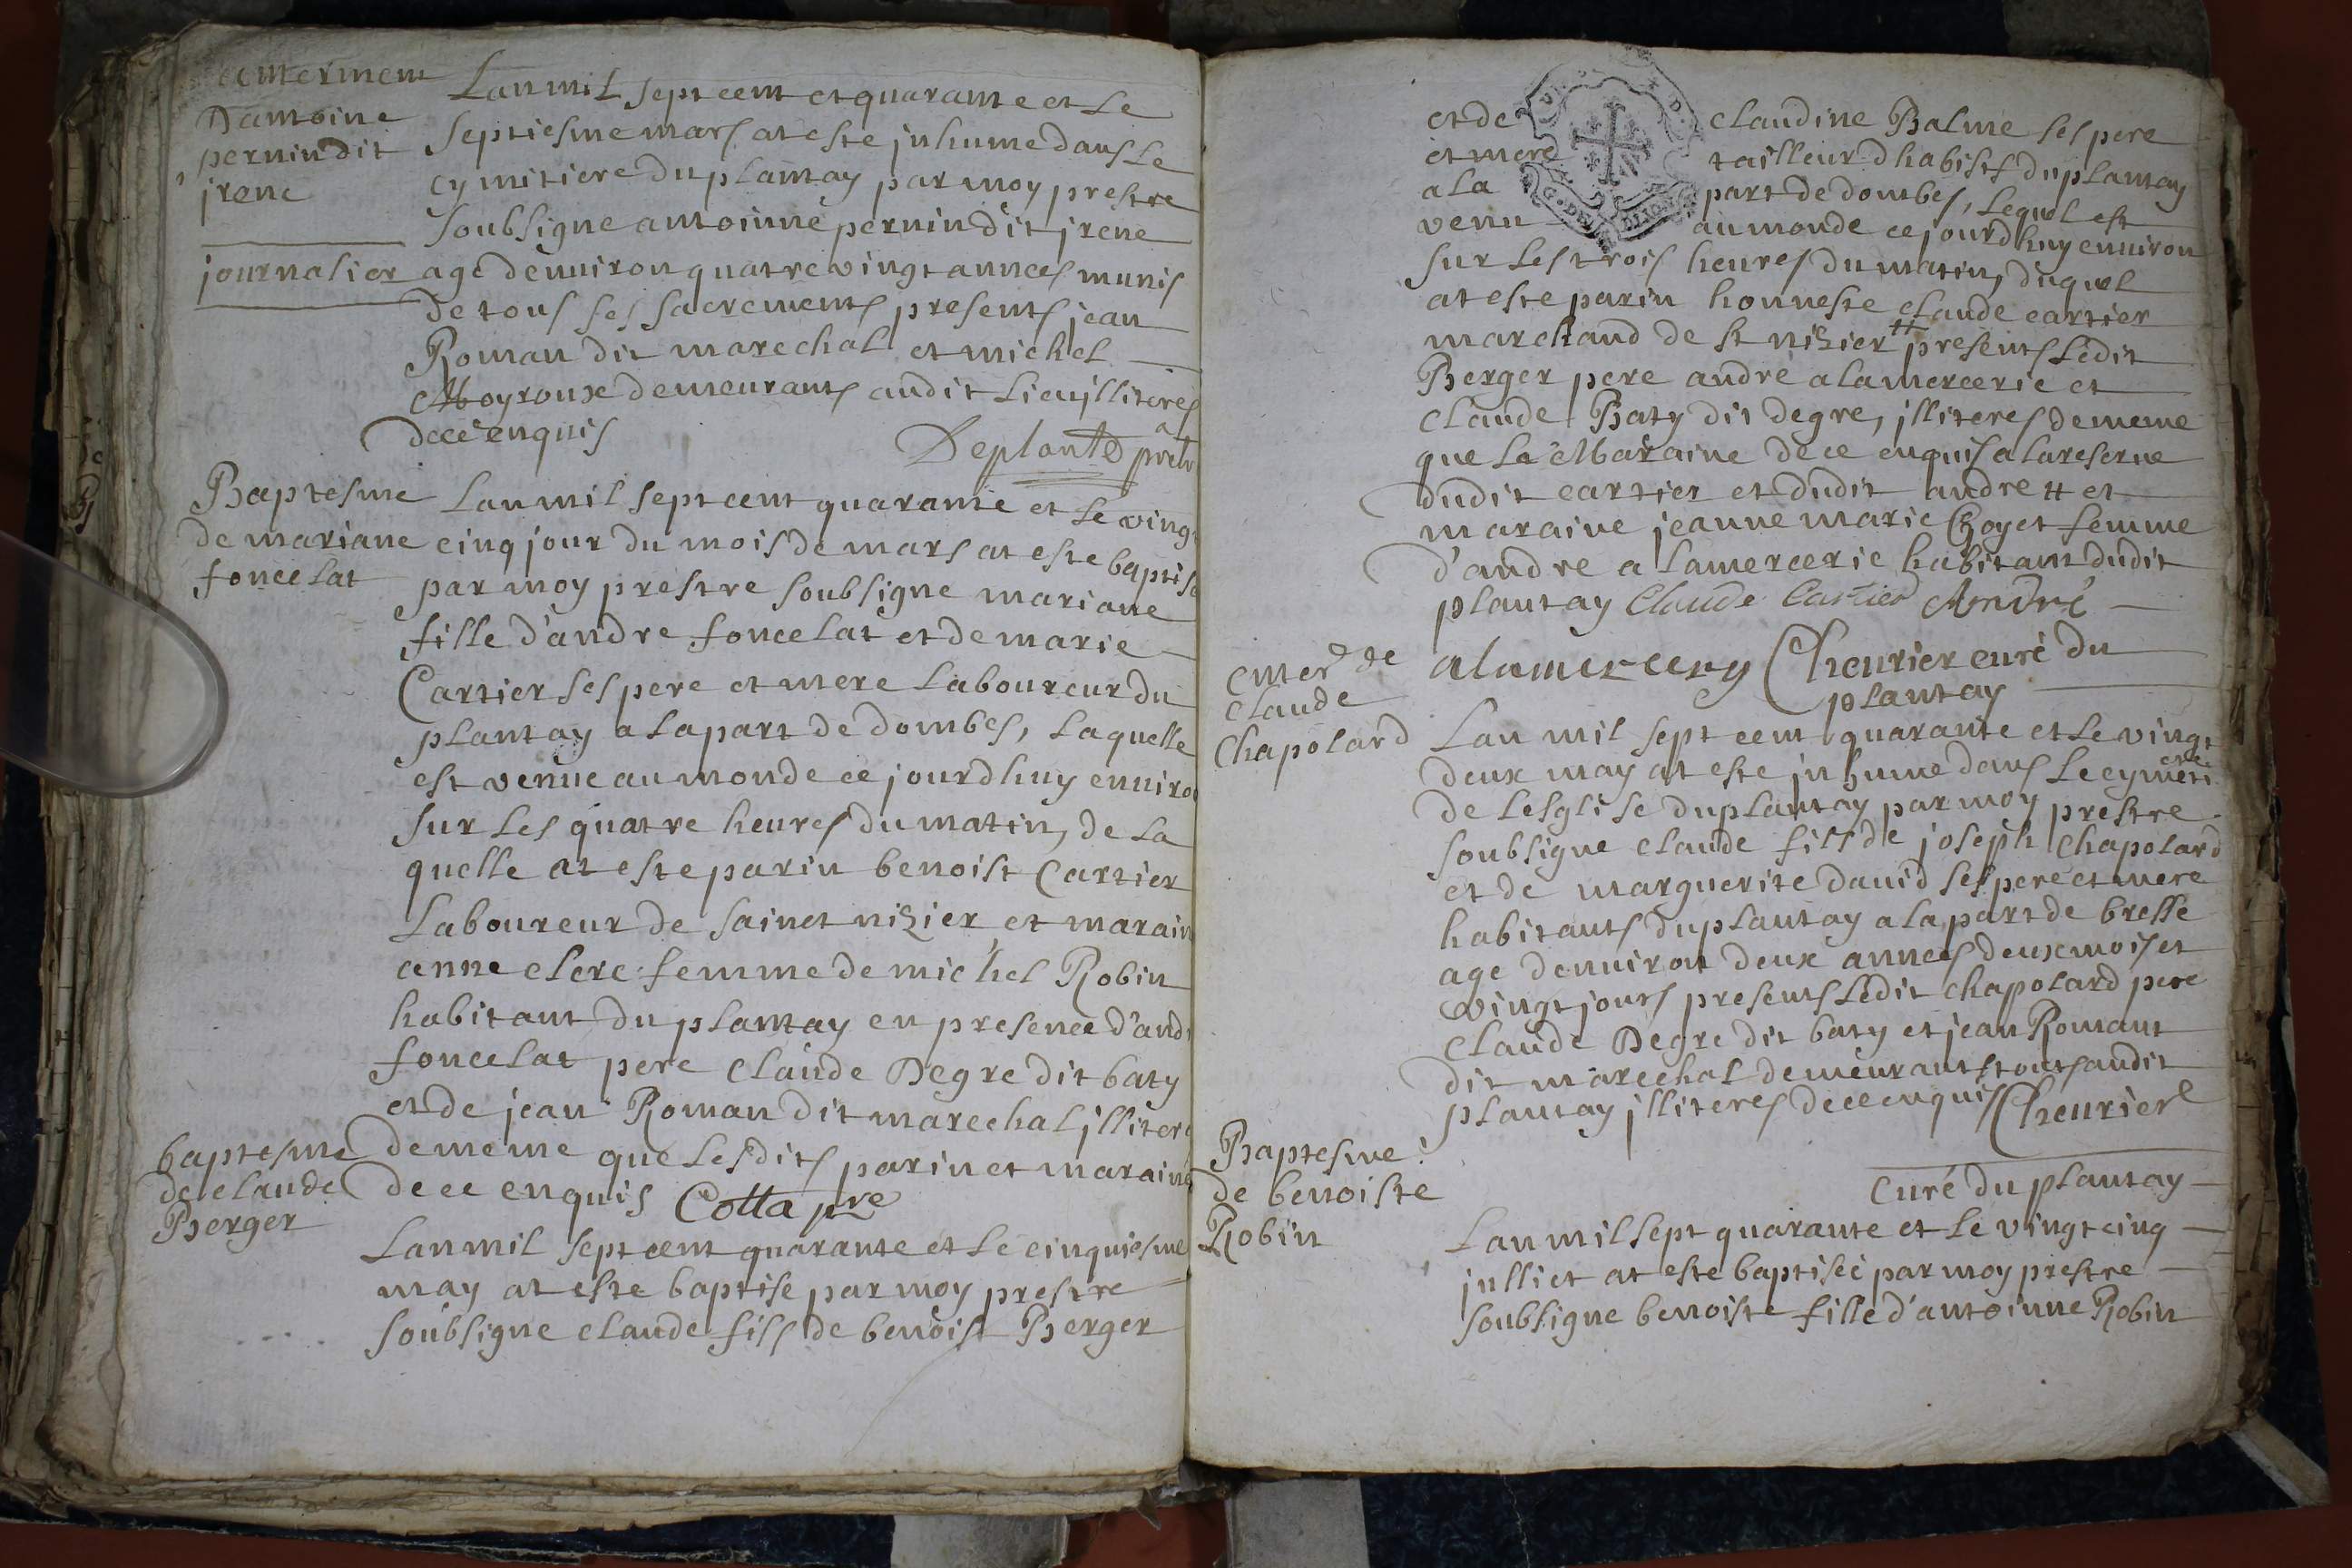 enterment
Dantoine
pernin dit
jrene
journalier
Lan mil sept cent et quarante et le
septiesme mars at este jnhume dans le
cymitiere du plantay par moy prestre
soubsigne antoinne pernin dit jrene
age denuiron quatre vingt annees munis
de tous ses sacrements presents jean
Roman dit marechal et michel
Moyroux demeurants audit lieu jlliteres
de ce enquis
Deplante
Baptesme
de mariane
foncelat
Lan mil sept cent quarante et le vingt
cinq jour du mois de mars at este baptise
par moy prestre soubsigne mariane
fille d'andre foncelat et de marie
Cartier ses pere et mere laboureur du
plantay a la part de dombes, laquelle
est venue au monde ce jourdhuy enuiron
sur les quatre heures du matin, de la
quelle at este parin benoist Cartier
laboureur de sainct nizier et marain
anne clerc femme de michel Robin
habitant du plantay en presence d'andr
foncelat pere claude Degre dit baty
et de jean Roman dit marechal jllitere
de meme que lesdits parin et maraine
de ce enquis Cotta pre
baptesme
de claude
Berger
Lan mil sept cent quarante et le cinquiesme
may at este baptise par moy prestre
soubsigne claude fils de benoist Berger
et de claudine Balme ses pere
et mere tailleur d habists du plantay
a la part de dombes, lequel est
venu au monde ce jourdhuy enuiron
sur les trois heures du matin, duquel
at este parin honneste claude cartier
marchand de st nizier # presents ledit
Berger pere andre alamercerie et
claude Baty dit degre, jlliteres de meme
que la Maraine de ce enquis a la reserue
dudit cartier et dudit andre # et
maraine jeanne marie Choyet femme
d'andre alamercerie habitant dudit
plantay Claude Cartier André
alamercery Cheurier curé du
plantay
enter de
claude
Chapolard
Lan mil sept cent quarante et le vingt
deux may at este jnhume dans le cymeti
ere
de lesglise du plantay par moy prestre
soubsigne claude fils de joseph Chapolard
et de marguerite dauid ses pere et mere
habitants du plantay a la part de bresse
age denuiron deux annees deux mois et
vingt jours presents ledit chapolard pere
claude Degre dit baty et jean Romant
dit marechal demeurants touts audit
plantay jlliteres de ce enquis Cheurier
curé du plantay
Baptesme
de benoiste
Robin
Lan mil sept quarante et le vingt cinq
julliet at este baptiseé par moy prestre
soubsigne benoiste fille d'antoinne Robin